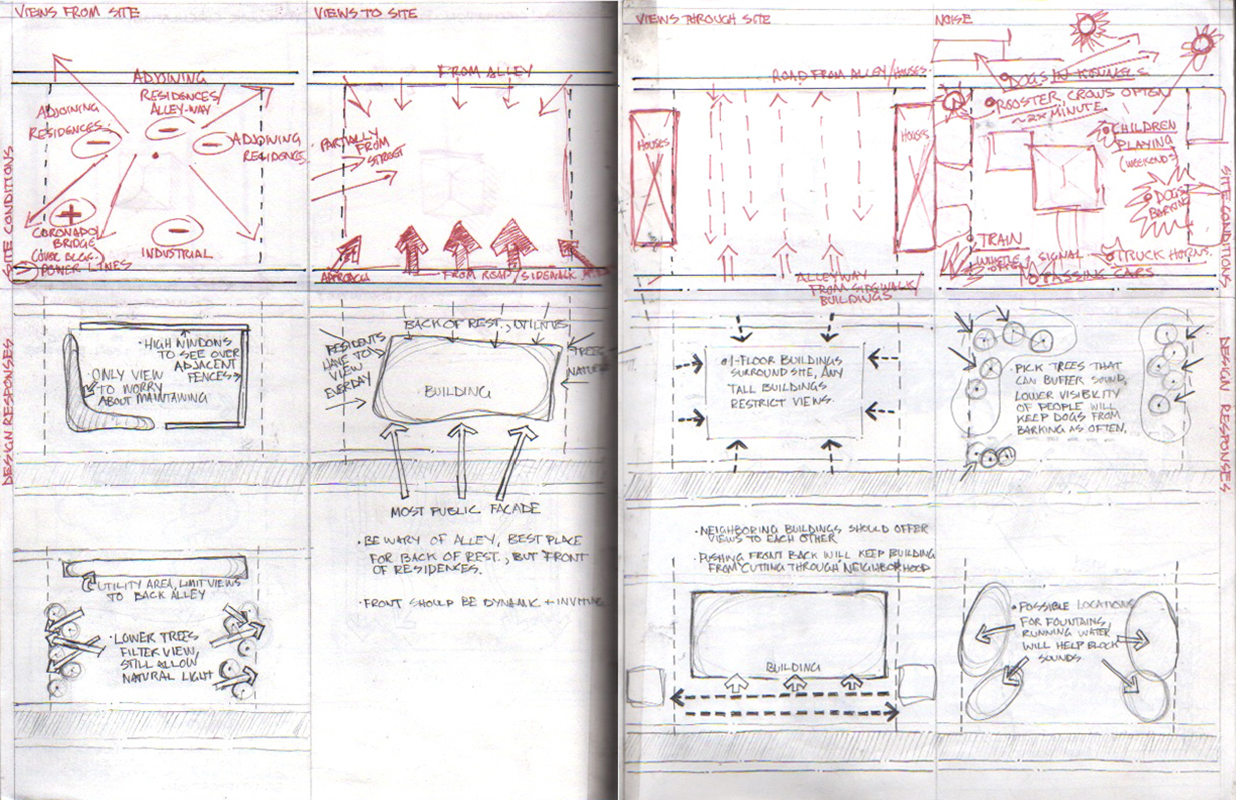 VIEWS FROM SITE
ADJOINING
RESIDENCES/
ALLEY-WAY
ADJOINING
RESIDENCES
ADJOINING
RESIDENCE
CORONADO
BRIDGE
POWER LINES
INDUSTRIAL
SITE CONDITIONS
VIEWS TO SITE
FROM ALLEY
PARTIALLY
FROM
STREET
APPROACH
FROM ROAD/SIDEWALK
VIEWS THROUGH SITE
ROAD FROM ALLEY/HOUSES
HOUSES
HOUSES
ALLEYWAY
FROM SIDEWALK/
BUILDINGS
NOISE
DOGS IN KENNELS
ROOSTER CROWS OFTEN
~2X MINUTE
CHILDREN
PLAYING
(WEEKENDS)
DOGS
BARKING
TRAIN
WHISTLE
OFTEN
SIGNAL
TRUCK HORNS
PASSING CARS
SITE CONDITIONS
DESIGN RESPONSES
•HIGH WINDOWS
TO SEE OVER
ADJACENT
FENCES
ONLY VIEW
TO WORRY
ABOUT MAINTAINING
UTILITY AREA, LIMIT VIEWS
TO BACK ALLEY
•LOWER TREES
FILTER VIEW,
STILL ALLOW
NATURAL LIGHT
BACK OF REST., UTILITIES
RESIDENTS
HAVE TO
VIEW
EVERYDAY
TREES
BUILDING
MOST PUBLIC FACADE
•BE WARY OF ALLEY, BEST PLACE
FOR BACK OF REST., BUT FRONT
OF RESIDENCES.
•FRONT SHOULD BE DYNAMIC + INVITING
•1-FLOOR BUILDINGS
SURROUND SITE, ANY
TALL BUILDINGS
RESTRICT VIEWS.
•NEIGHBORING BUILDINGS SHOULD OFFER
VIEWS TO EACH OTHER
•PUSHING FRONT BACK WILL KEEP BUILDING
FROM CUTTING THROUGH NEIGHBORHOOD
BUILDING
•PICK TREES THAT
CAN BUFFER SOUND,
LOWER VISIBLITY
OF PEOPLE WILL
KEEP DOGS FROM
BARKING AS OFTEN.
•POSSIBLE LOCATIONS
FOR FOUNTAINS,
RUNNING WATER
WILL HELP BLOCK
SOUNDS
DESIGN RESPONSES